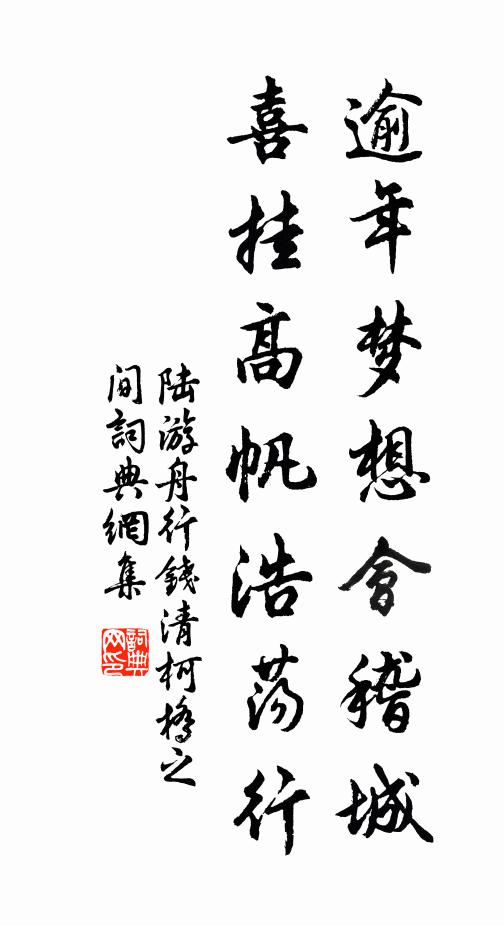 逾年梦想會稽城
喜挂高帆浩荡行
陆游舟行钱清柯橋之
间詞典網集
詞典
网印